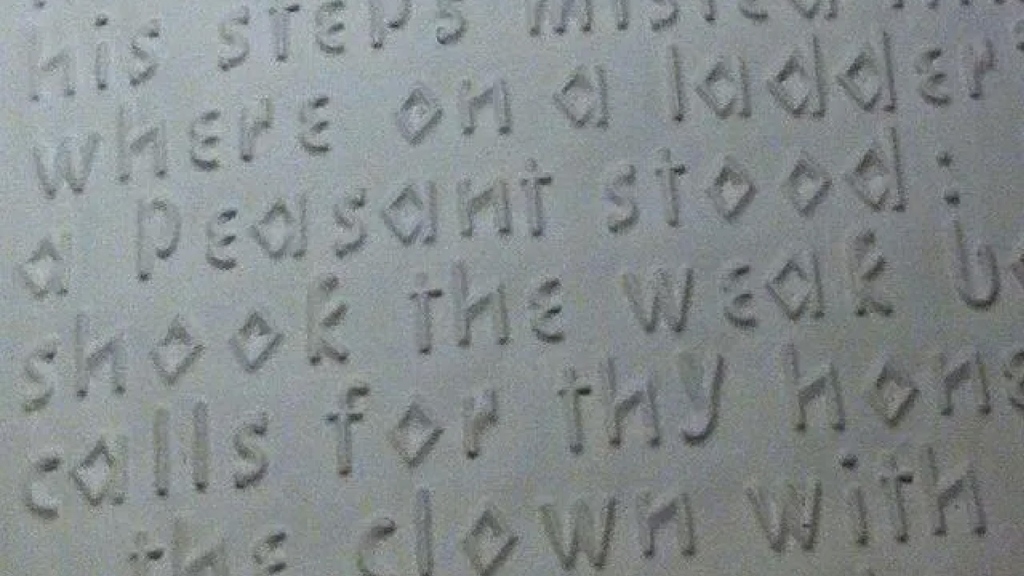 his steps misled
where on a ladder
a peasant stood:
shook the weak
calls for thy
the clown with